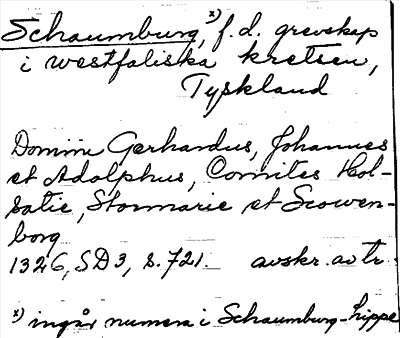 Schaumburg, x) f. d. grevskap
i westfaliska kretsen,
Tyskland
Domini Gerhardus, Johannes
et Adolphus, Comites Hol-
satie, Stormarie et Scowen-
borg
1326, SD3, s. 721. avskr. av tr.
x) ingår numera i Schaumburg-Lippe